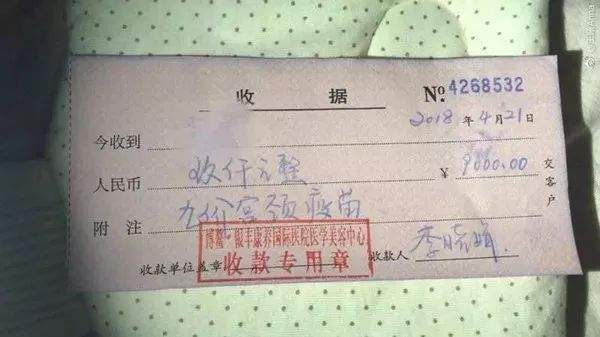 收 据 № 4268532
2018 年 4 月 21 日
今收到
人民币 玖仟元整 ￥ 9000.00
附 注 九价宫颈疫苗
博鳌·银丰康养国际医院医学美容中心
收款专用章
收款单位盖章 收款人 李
交客户